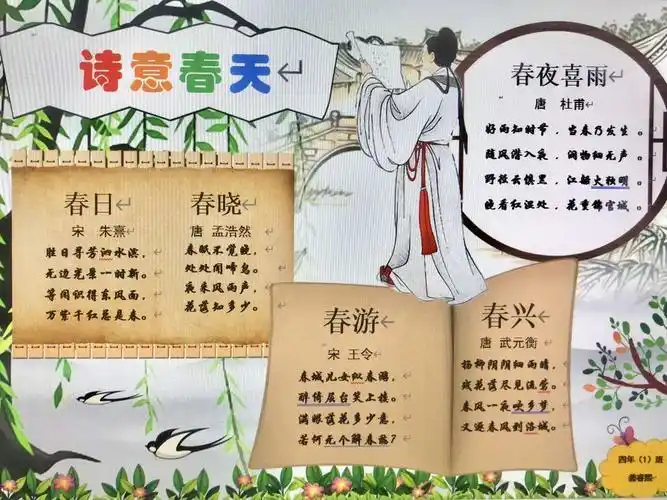 诗意春天
春日
宋 朱熹
胜日寻芳泗水滨，
无边光景一时新。
等闲识得东风面，
万紫千红总是春。
春晓
唐 孟浩然
春眠不觉晓，
处处闻啼鸟。
夜来风雨声，
花落知多少。
春夜喜雨
唐 杜甫
好雨知时节，当春乃发生。
随风潜入夜，润物细无声。
野径云俱黑，江船火独明。
晓看红湿处，花重锦官城。
春游
宋 王令
春城儿女纵春游，
醉倚层台笑上楼。
满眼落花多少意，
若何无个解春愁？
春兴
唐 武元衡
杨柳阴阴细雨晴，
残花落尽见流莺。
春风一夜吹乡梦，
又逐春风到洛城。
四年（1）班